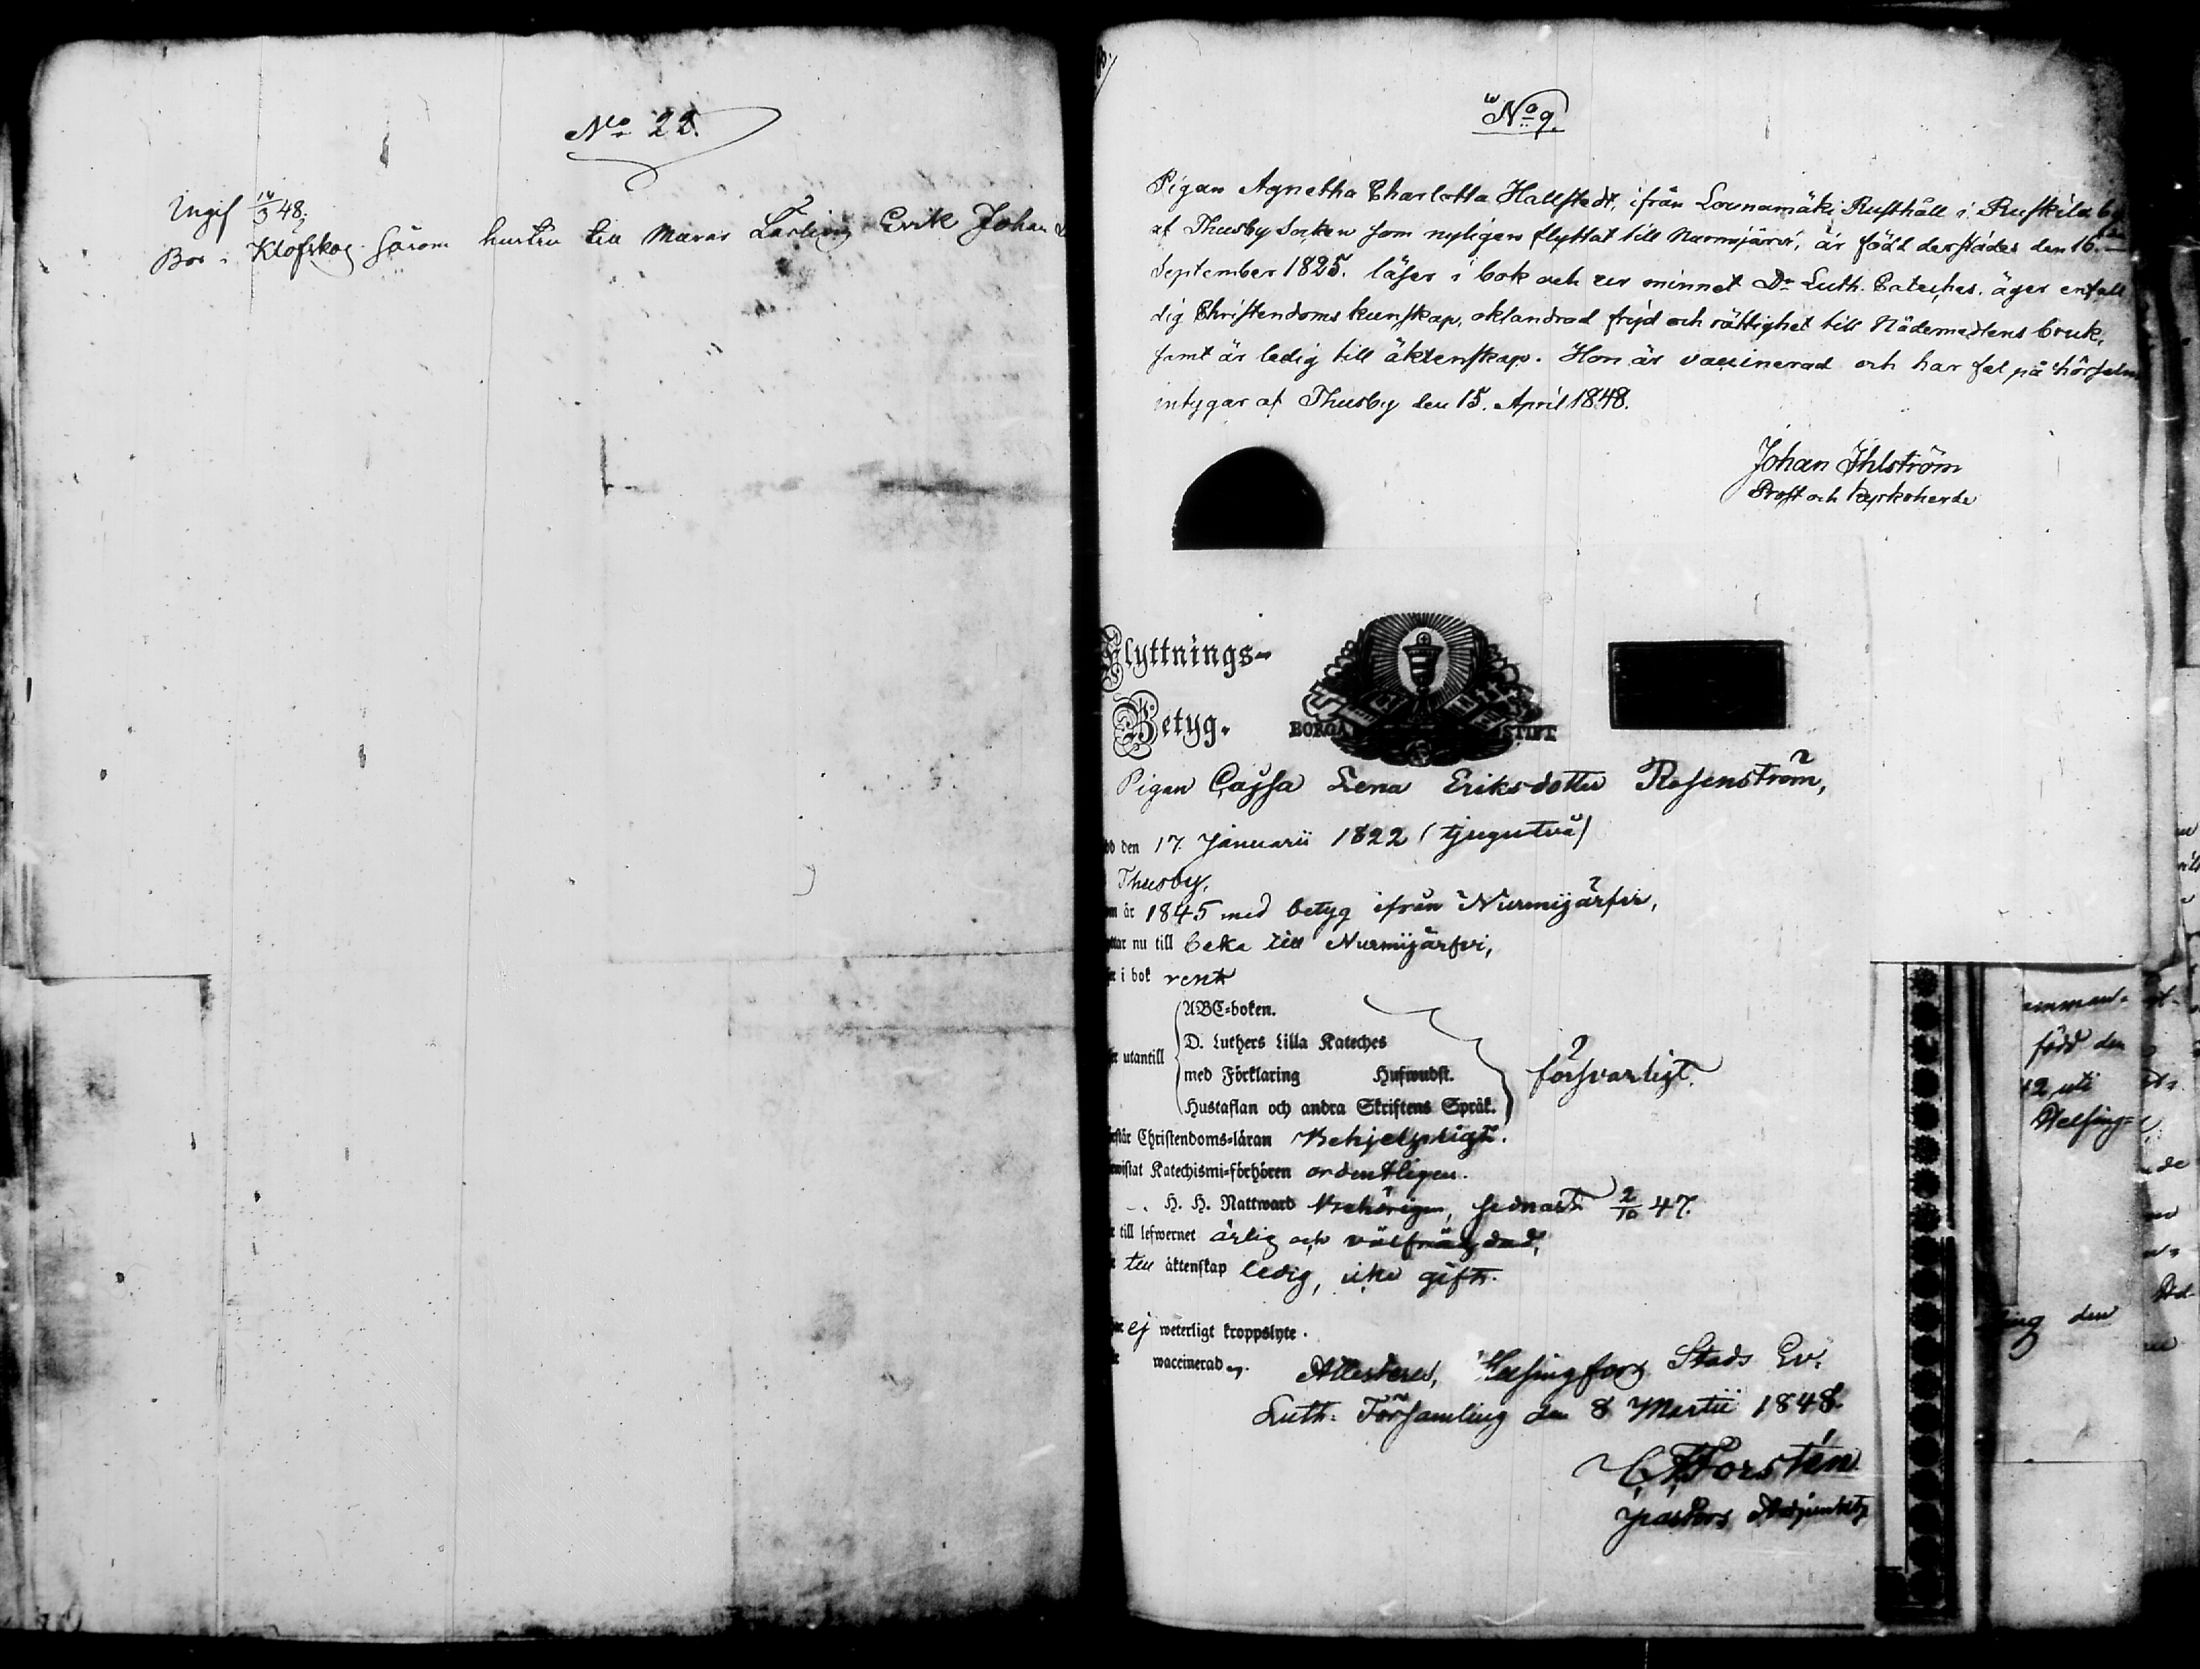 No 22.
Ingif 14/3 48.
Bor i Klöfskog såsom hustru till Murar Lärling Erik Johan
No 9.
Pigan Agnetha Charlotta Hallstedt, ifrån Lounamäki Rusthåll i Ruskela by
af Thusby Socken som nyligen flyttat till Nurmijärvi, är född derstädes den 16.de
September 1825. läser i bok och ur minnet Dr Luth. Cateches. äger enfall
dig Christendoms kunskap, oklandrad frejd och rättighet till Nådemedlens bruk,
samt är ledig till äktenskap. Hon är vaccinerad och har fel på hörseln
intygar af Thusby den 15. April 1848.
Johan Ihlström
Prost och Kyrkoherde
Flyttnings-
Betyg.
BORGÅ STIFT
Pigan Cajsa Lena Eriksdotter Rosenström,
den 17. Januarii 1822 (tjugutvå)
Thusby,
år 1845 med betyg ifrån Nurmijärfvi,
nu till baka till Nurmijärfvi,
i bok rent
ABC-boken.
D. Luthers Lilla Kateches
utantill
med Förklaring Hufwudst.
försvarligt.
Hustaflan och andra Skriftens Språk.
Christendoms-läran Behjelpligt.
Katechismi-förhören ordentligen.
H. H. Nattward Behörigen, sednast 2/10 47.
till lefwernet ärlig och välfräjdad,
till äktenskap ledig, icke gift.
ej weterligt kroppslyte.
waccinerad
Attesterad, Helsingfors Stads Ev.
Luth. Församling den 8 Martii 1848.
Forstén
Pastors Adjunkt
född den
uti
Helsing-
den